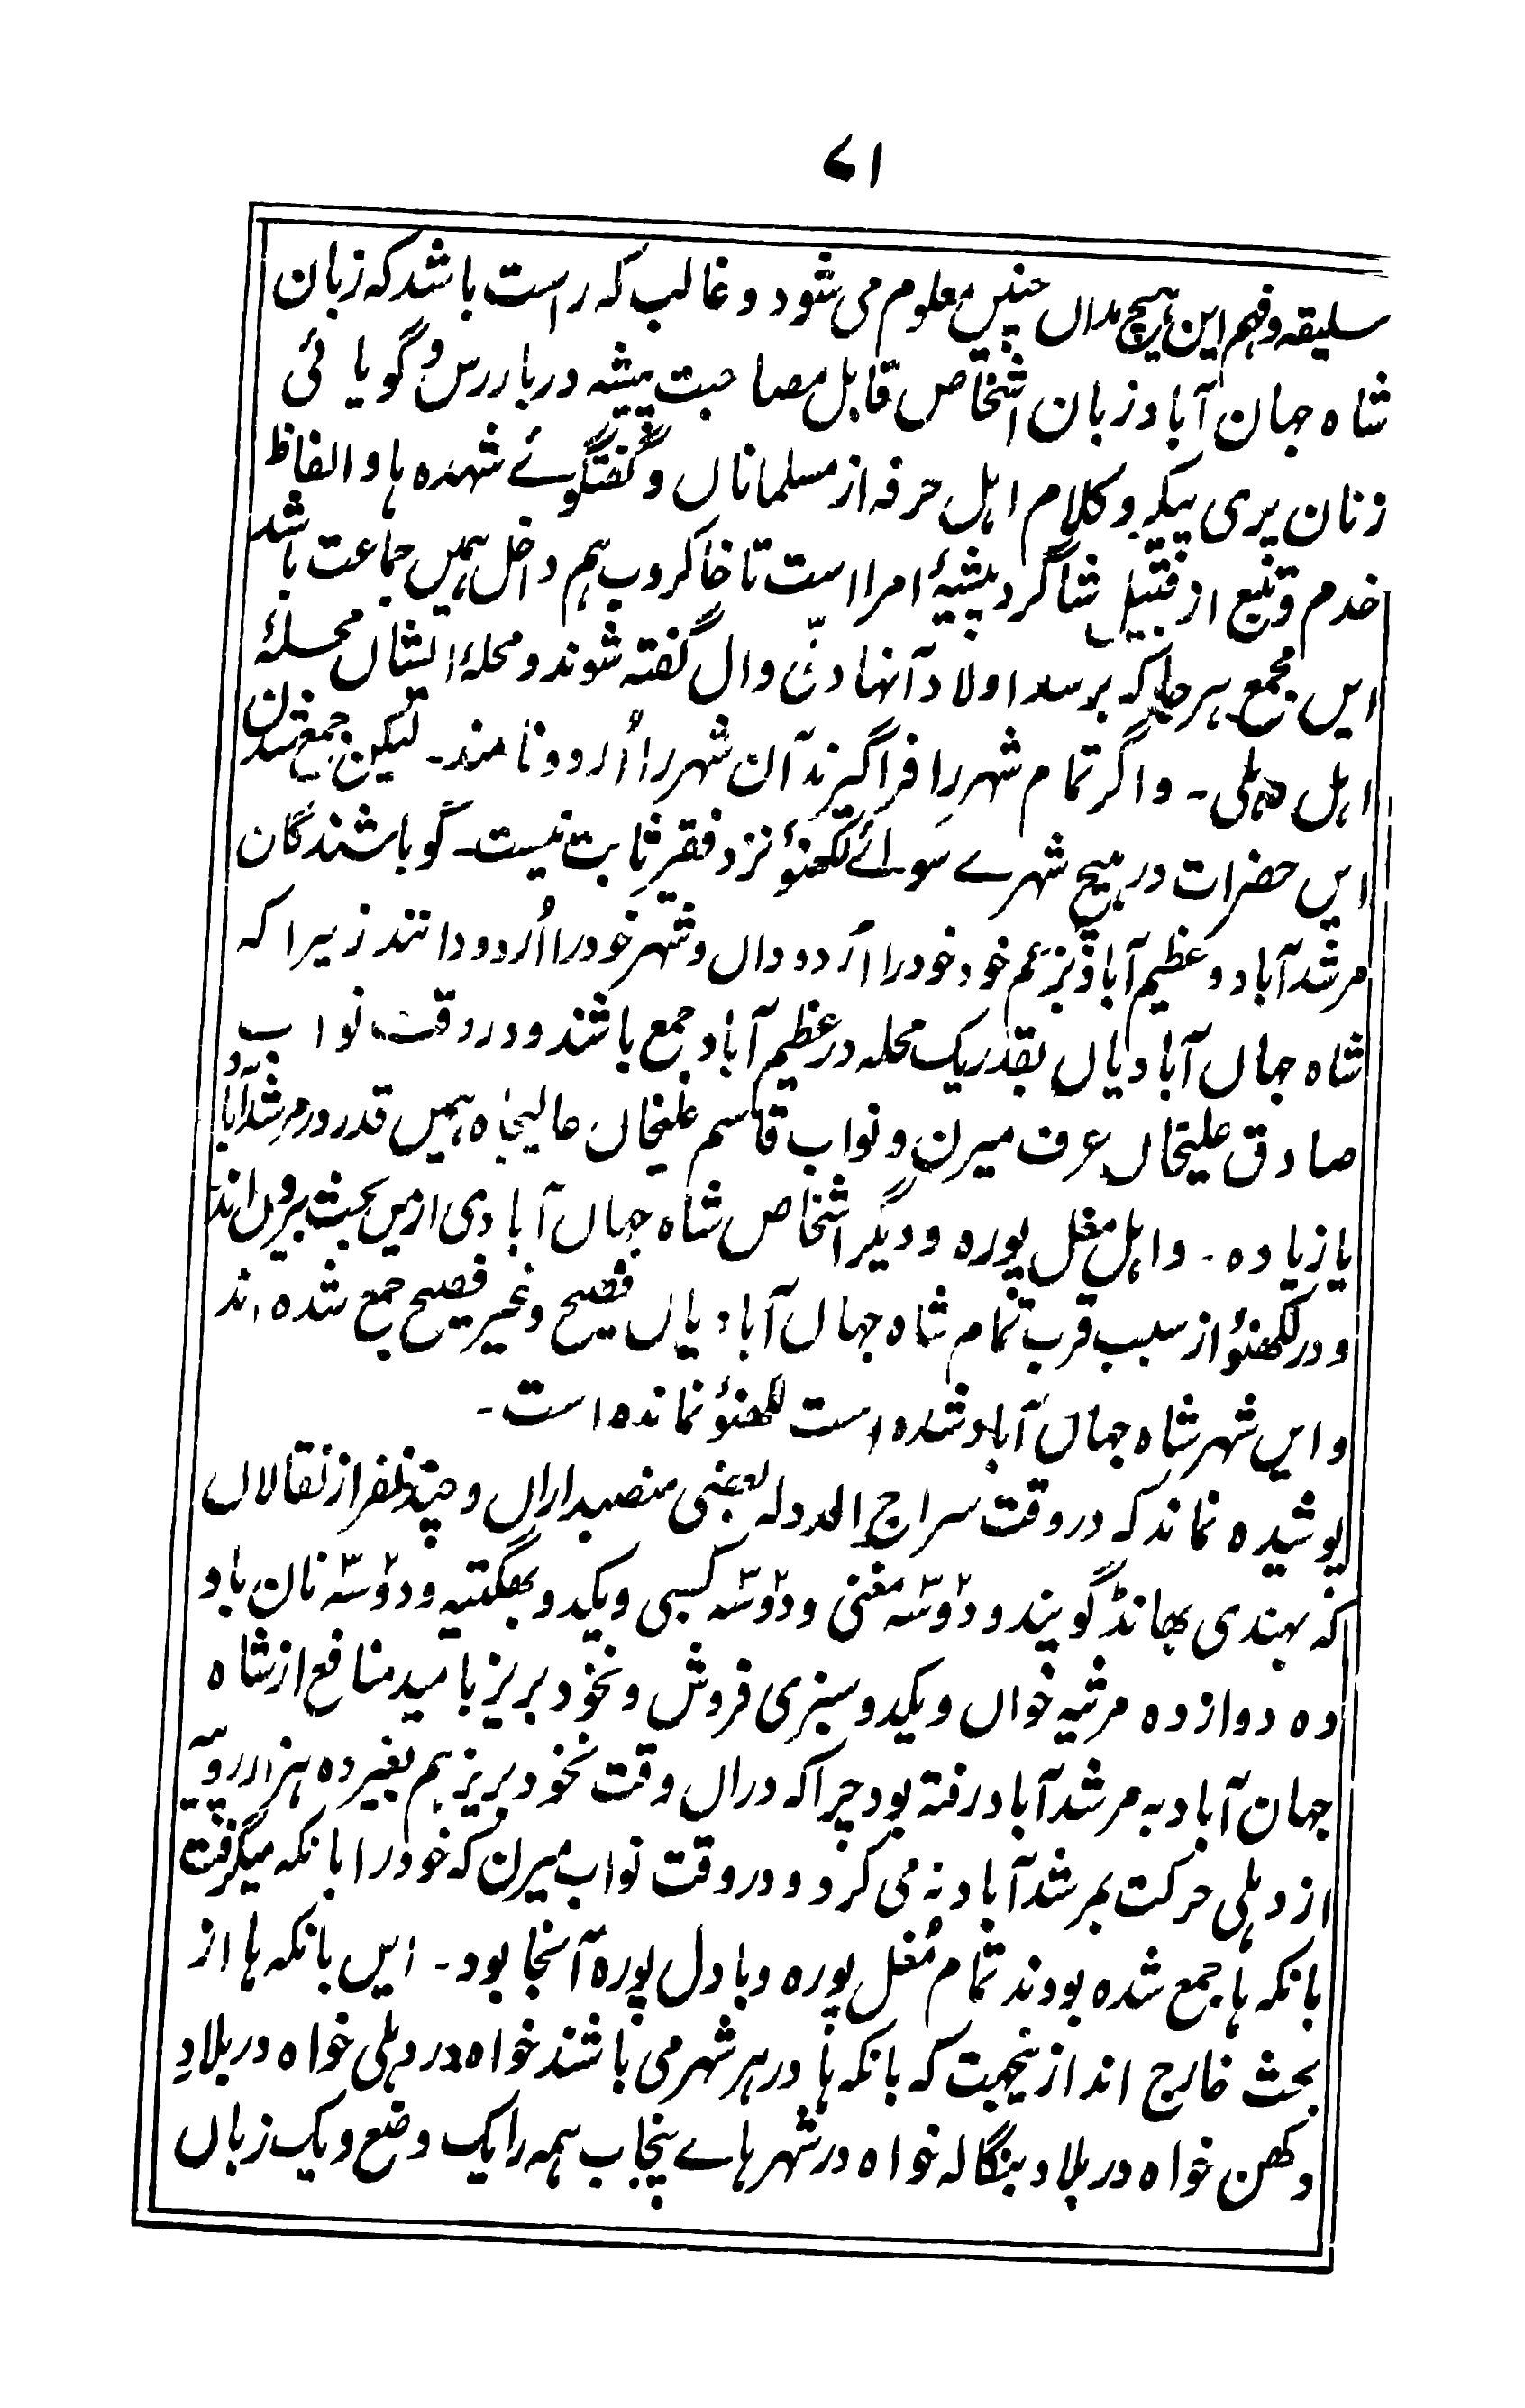 ۷۱
سلیقہ و فہم این ہیچ مداں چنیں معلوم می شود و غالب کہ راست باشد کہ زبان
شاہ جہان آباد زبان اشخاص قابل مصاحبت پیشہ درباررس و گویائی
زنان پری پیکر و کلام اہل حرفہ از مسلماناں و گفتگوئے شہدہ ہا و الفاظ
خدم و تبع از قبیل شاگرد پیشۂ امرا است تا خاکروب ہم داخل ہمیں جماعت باشد
ایں مجمع ہر جا کہ برسد اولاد آنہا دلّی وال گفتہ شوند و محلہ ایشاں محلۂ
اہل دہلی۔ و اگر تمام شہر را فراگیرند آن شہر را اُردو نامند۔ لیکن جمع شدن
ایں حضرات در ہیچ شہرے سوائے لکھنؤ نزد فقیر ثابت نیست۔ گو باشندگان
مرشدآباد و عظیم آباد بزعم خود خود را اُردو داں و شہر خود را اُردو دانند زیرا کہ
شاہ جہاں آبادیاں بقدر یک محلہ در عظیم آباد جمع باشند و در وقت نواب
صادق علیخاں عرف میرن و نواب قاسم علیخاں عالیجاہ ہمیں قدر در مرشدآباد
یا زیادہ۔ و اہل مغل پورہ و دیگر اشخاص شاہ جہاں آبادی ازیں بحث بیروں اند
و در لکھنؤ از سبب قرب تمام شاہ جہاں آبادیاں فصیح و غیر فصیح جمع شدہ اند
و ایں شہر شاہ جہاں آباد شدہ است لکھنؤ نماندہ است۔
پوشیدہ نماند کہ در وقت سراج الدولہ بعضی منصبداراں و چند نفر از نقالاں
کہ بہندی بھانڈ گویند و دو سہ مغنی و دو سہ کسبی و یکدو بھگتیہ و دو سہ نان باد
دہ دوازدہ مرثیہ خواں و یکدو سبزی فروش و نخود بریز بامید منافع از شاہ
جہان آباد بہ مرشدآباد رفتہ بود چرا کہ دراں وقت نخود بریز ہم بغیر دہ ہزار روپیہ
از دہلی حرکت بمرشدآباد نہ می کرد و در وقت نواب میرن کہ خود را بانکہ میگرفت
بانکہ ہا جمع شدہ بودند تمام مُغل پورہ و بادل پورہ آنجا بود۔ ایں بانکہ ہا از
بحث خارج اند ازینجہت کہ بانکہ ہا در ہر شہر می باشند خواہ در دہلی خواہ در بلادِ
دکھن خواہ در بلاد بنگالہ خواہ در شہر ہاے پنجاب ہمہ را یک وضع و یک زباں